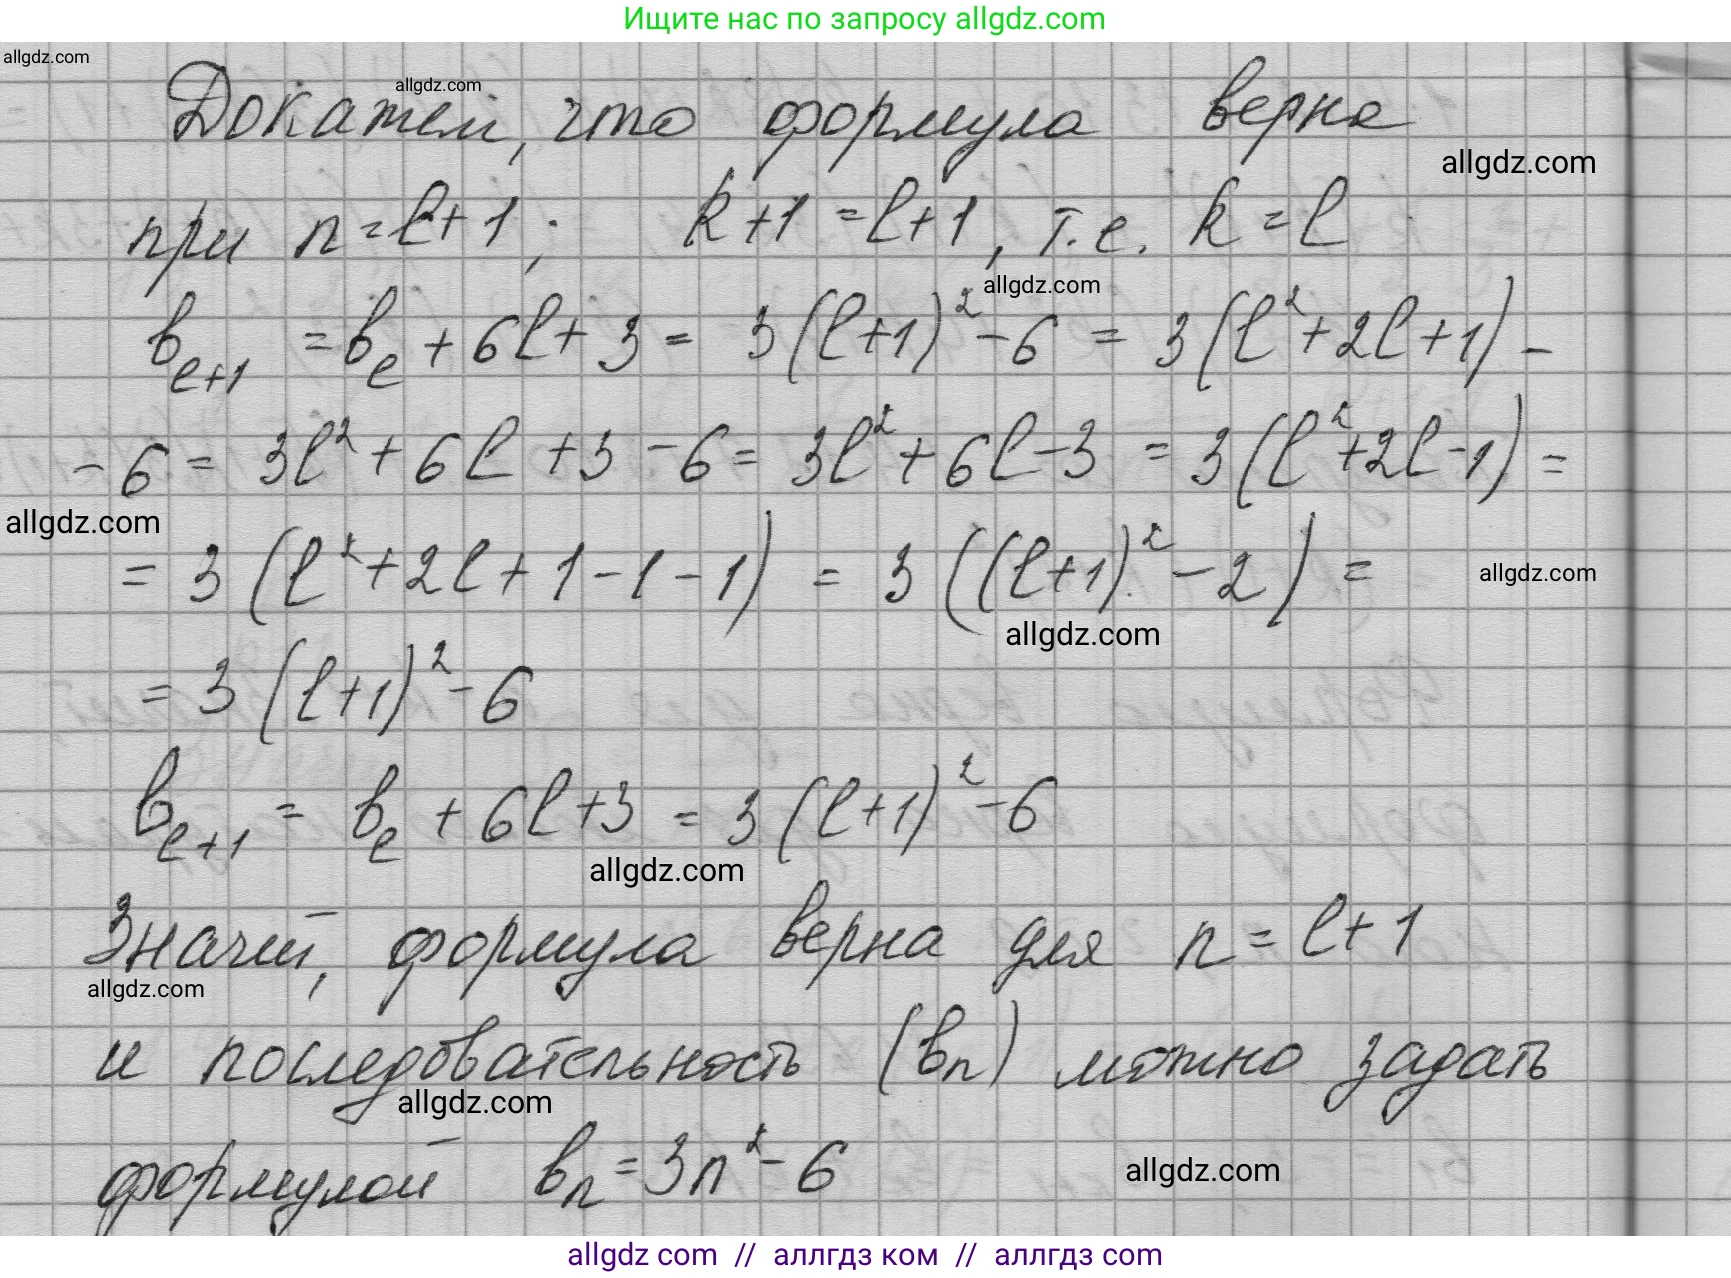 Ищите нас по запросу allgdz.com
allgdz.com
allgdz.com
Докажем, что формула верна
allgdz.com
при n = l + 1; k + 1 = l + 1, т.е. k = l
allgdz.com
b_{l+1} = b_l + 6l + 3 = 3(l+1)² - 6 = 3(l² + 2l + 1) -
- 6 = 3l² + 6l + 3 - 6 = 3l² + 6l - 3 = 3(l² + 2l - 1) =
allgdz.com
= 3(l² + 2l + 1 - 1 - 1) = 3((l+1)² - 2) =
allgdz.com
allgdz.com
= 3(l+1)² - 6
b_{l+1} = b_l + 6l + 3 = 3(l+1)² - 6
allgdz.com
Значит, формула верна для n = l + 1
allgdz.com
и последовательность (b_n) можно задать
allgdz.com
формулой b_n = 3n² - 6
allgdz.com
allgdz com // аллгдз ком // аллгдз com